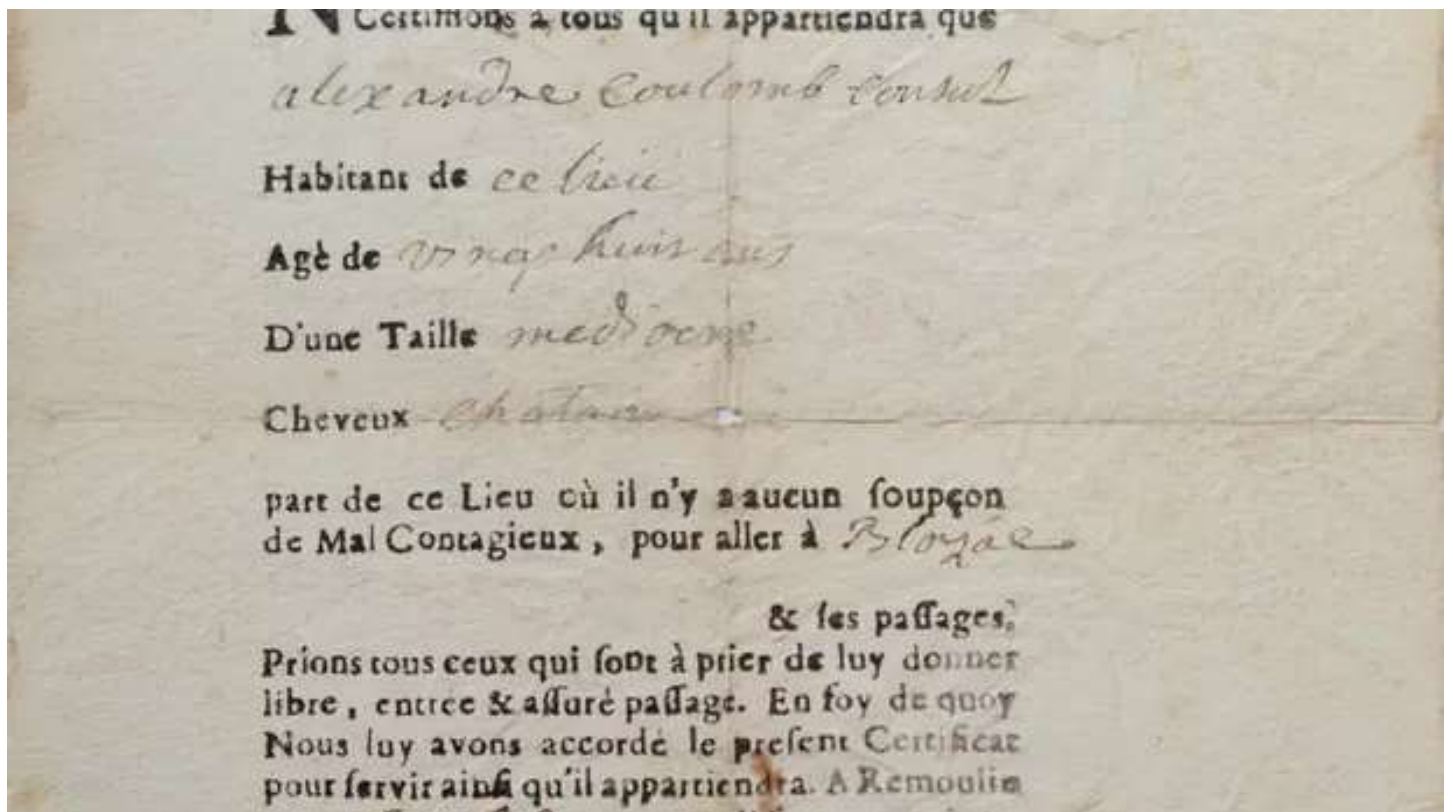 Certifions à tous qu'il appartiendra que
alexandre Coulomb Consul
Habitant de ce lieu
Agè de vingt huit ans
D'une Taille mediocre
Cheveux chatain
part de ce Lieu où il n'y a aucun ſoupçon
de Mal Contagieux, pour aller à
& ſes paſſages.
Prions tous ceux qui ſont à prier de luy donner
libre, entrée & aſſuré paſſage. En foy de quoy
Nous luy avons accordé le preſent Certificat
pour ſervir ainſi qu'il appartiendra. A Remoulin